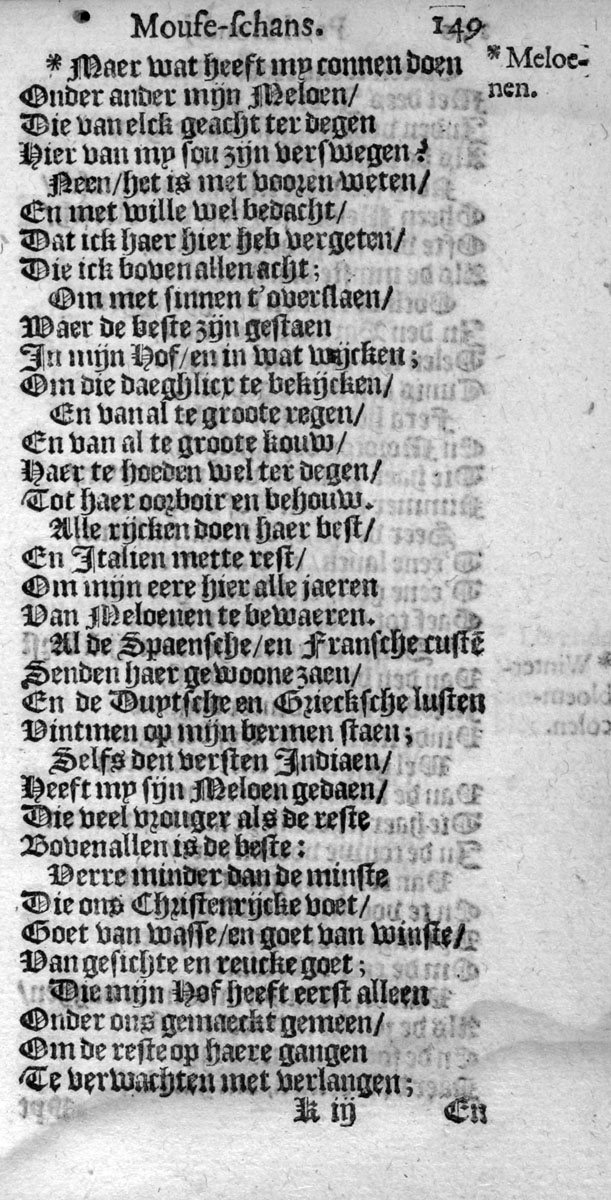 Mouse-schans. 149
* Maer wat heeft my connen doen
* Meloe-
nen.
Onder ander mijn Meloen/
Die van elck geacht ter degen
Hier van my sou zijn verswegen?
Neen/het is met vooren weten/
En met wille wel bedacht/
Dat ick haer hier heb vergeten/
Die ick boven allen acht;
Om met sinnen t'overslaen/
Waer de beste zijn gestaen
In mijn Hof/en in wat wijcken;
Om die daeghlicx te bekijcken/
En van al te groote regen/
En van al te groote kouw/
Haer te hoeden wel ter degen/
Tot haer oorboir en behouw.
Alle rijcken doen haer best/
En Italien mette rest/
Om mijn eere hier alle jaeren
Van Meloenen te bewaeren.
Al de Spaensche/en Fransche custē
Senden haer gewoone zaen/
En de Duytsche en Griecksche lusten
Vintmen op mijn bermen staen;
Selfs den versten Indiaen/
Heeft my sijn Meloen gedaen/
Die veel vrouger als de reste
Boven allen is de beste:
Verre minder dan de minste
Die ons Christenrijcke voet/
Goet van wasse/en goet van winste/
Van gesichte en reucke goet;
Die mijn Hof heeft eerst alleen
Onder ons gemaeckt gemeen/
Om de reste op haere gangen
Te verwachten met verlangen;
K iij En